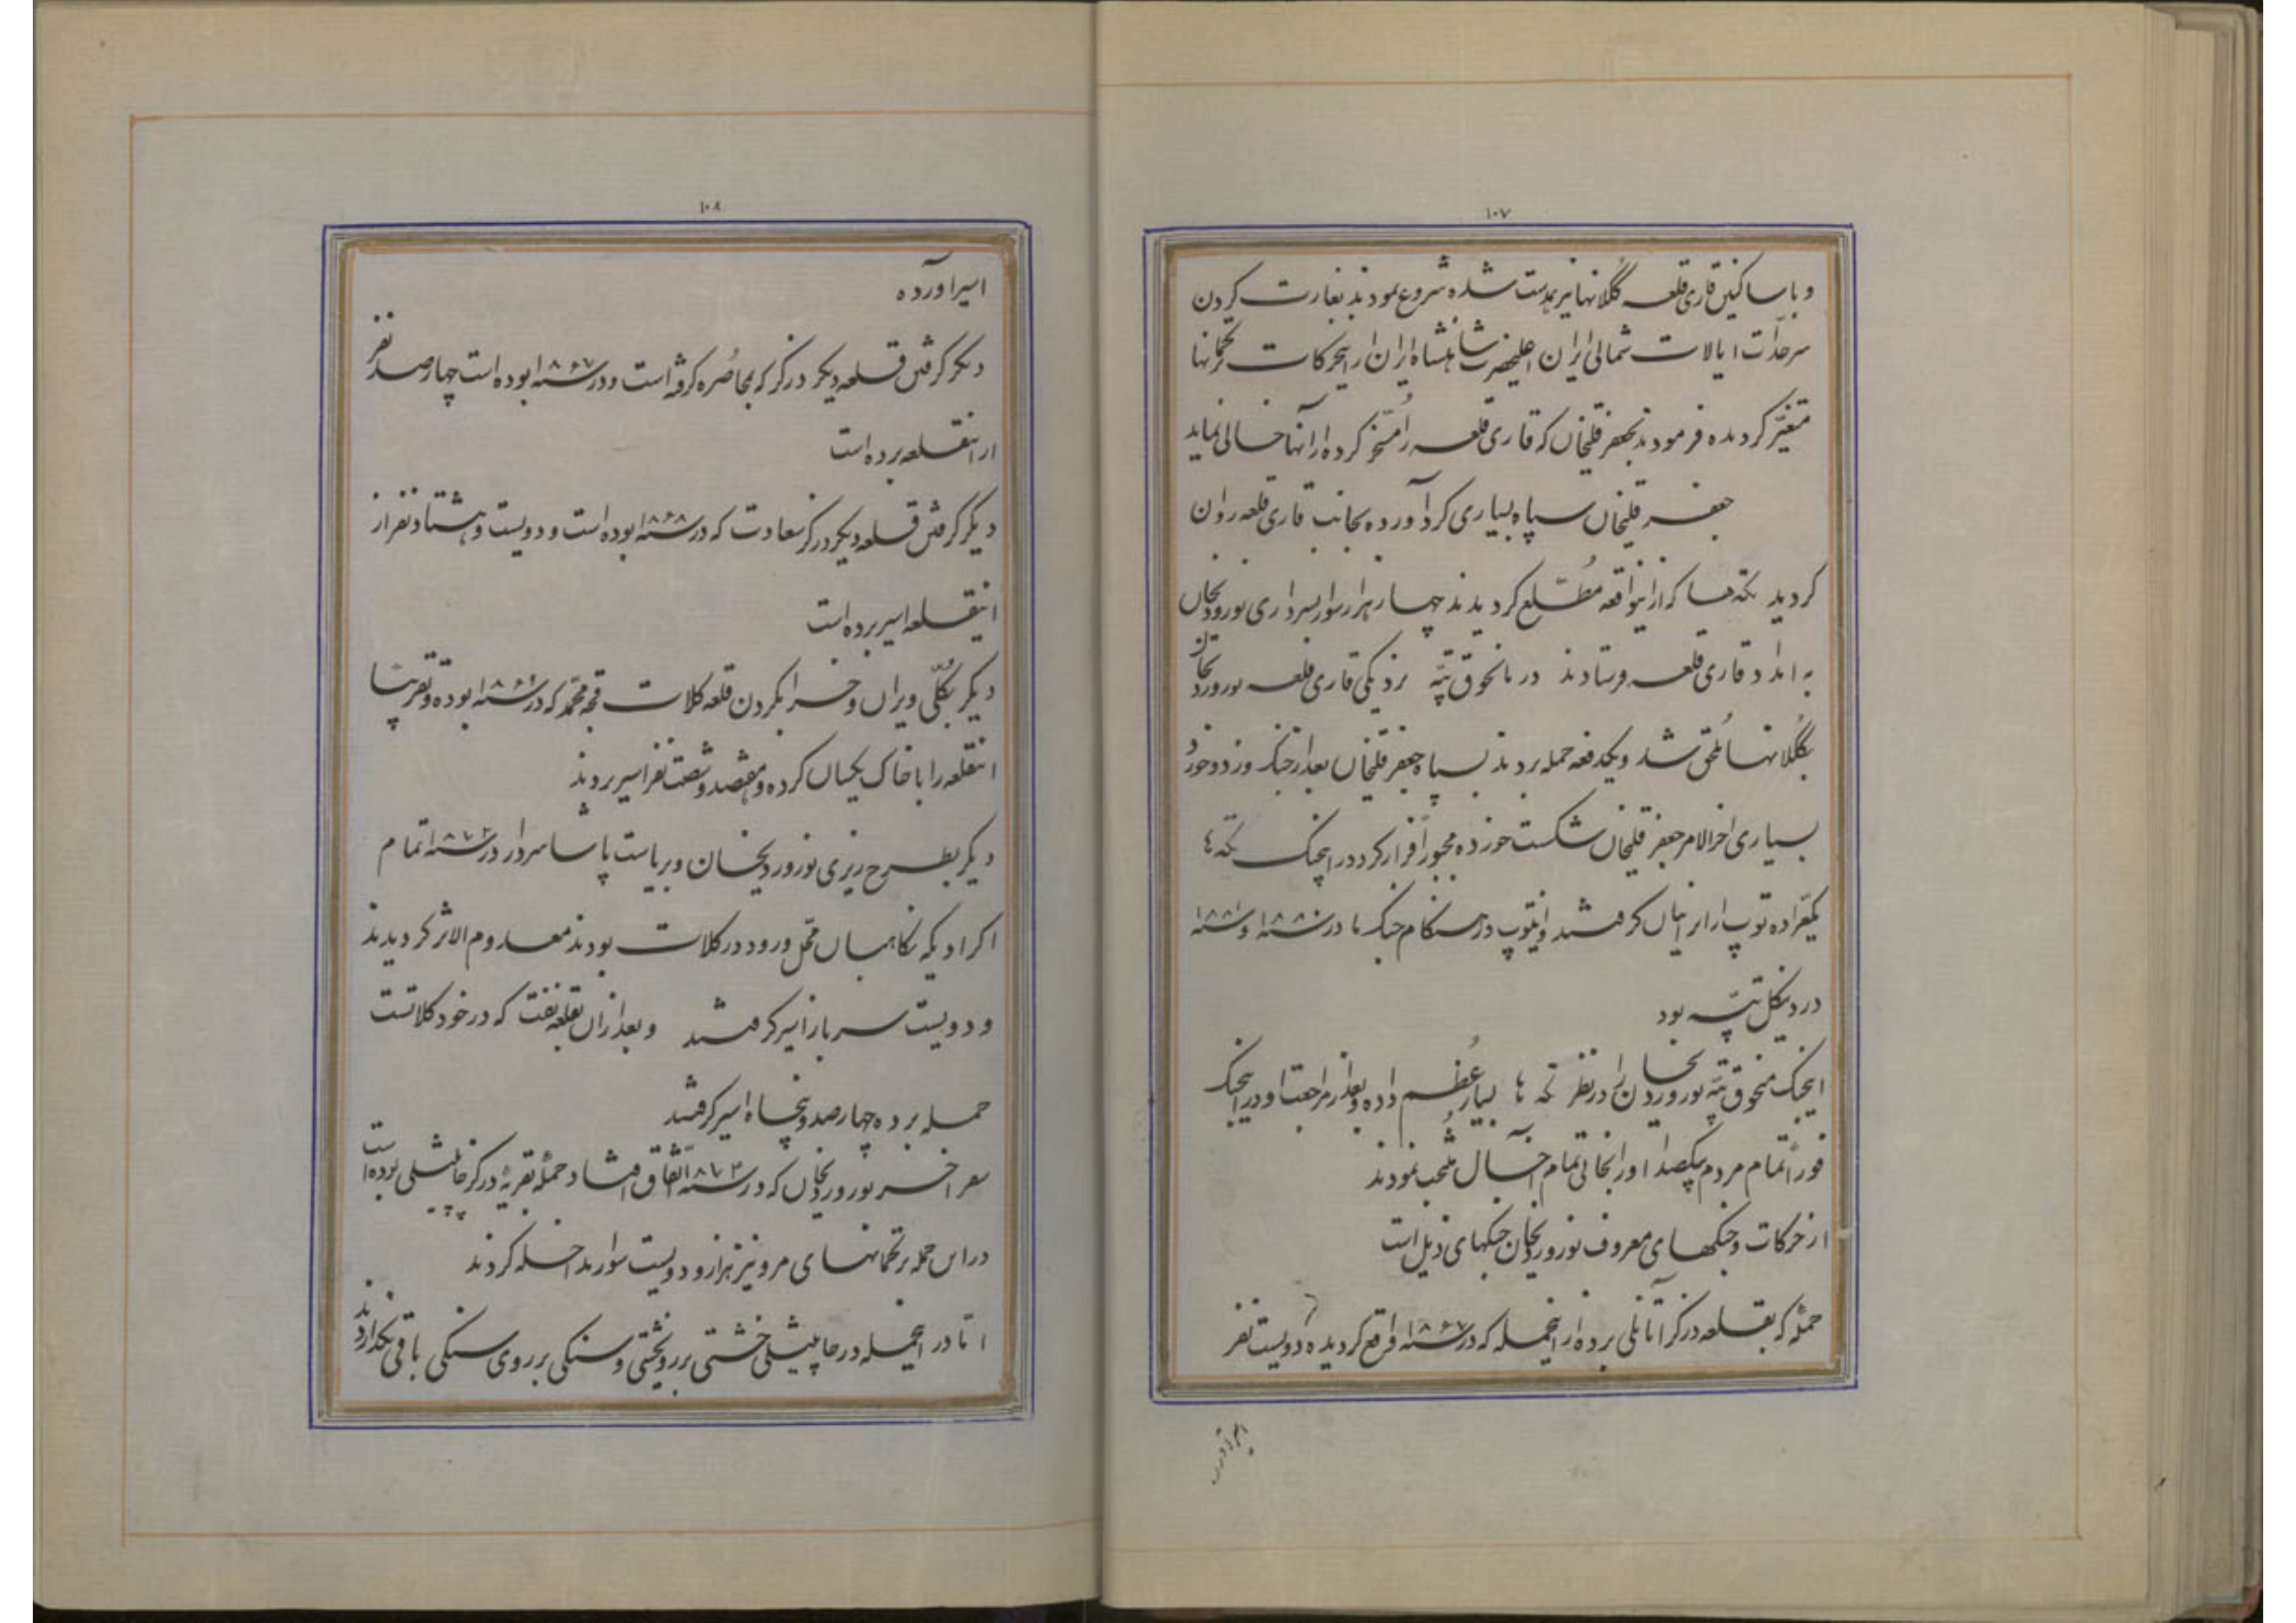 ۱۰۷
و با ساکنین قاری قلعه گکلانها نیز همدست شده شروع نمودند بغارت کردن
سرحدات ایالات شمالی ایران اعلیحضرت شاهنشاه ایران از اینحرکات ترکمانها
متغیّر گردیده فرمودند بجعفر قلیخان که قاری قلعه را مسخّر کرده از آنها خالی نماید
جعفر قلیخان سپاه بسیاری گرد آورده بجانب قاری قلعه روان
گردید تکه‌ها که از اینواقعه مطّلع گردیدند چهار هزار سوار بسرداری نوروردیخان
به امداد قاری قلعه فرستادند در مانخوق تپّه نزدیکی قاری قلعه نوروردیخان
بگکلانها ملحق شد و یکدفعه حمله بردند بسپاه جعفر قلیخان بعد از جنگ و زد و خورد
بسیاری اخرالامر جعفر قلیخان شکست خورده مجبوراً فرار کرد در اینجنگ تکه ها
یکعرّاده توپ از ایرانیان گرفتند و اینتوپ در هنگام جنگ ما در سنه ۱۸۸۰ و سنه ۱۸۸۱
در دینگل تپّه بود
اینجنگ منخوق تپّه نوروردیخان را در نظر تکه ها بسیار عُظم داده و بعد از مراجعت او در اینجنگ
فوراً تمام مردم یکصدا او را بخانی تمام آخال منتخب نمودند
از حرکات و جنگهای معروف نوروردیخان جنگهای ذیل است
حملهٔ که بقلعه درگز آتانلی برده از اینحمله که در سنه ۱۸۶۷ واقع گردیده دویست نفر
۱۰۸
اسیر آورده
دیگر گرفتن قلعه دیگر درگز که بمحاصره گرفته است و در سنه ۱۸۶۷ بوده است چهار صد نفر
از اینقلعه برده است
دیگر گرفتن قلعه دیگر درگز سعادت که در سنه ۱۸۶۸ بوده است و دویست و هشتاد نفر از
اینقلعه اسیر برده است
دیگر بکلّی ویران و خراب کردن قلعه کلات قچه محمّد که در سنه ۱۸۶۹ بوده و تقریباً
اینقلعه را با خاک یکسان کرده و هفتصد و شصت نفر اسیر بردند
دیگر بطرح ریزی نوروردیخان و بریاست پاشا سردار در سنه ۱۸۷۲ تمام
اکراویکه نگاهبان محل ورود در کلات بودند معدوم الاثر گردیدند
و دویست سرباز اسیر گرفتند و بعد از آن بقلعه نفت که در خود کلاتست
حمله برده چهار صد و پنجاه اسیر گرفتند
سفر اخر نوروردیخان که در سنه ۱۸۷۳ اتّفاق افتاد حمله بقریهٔ درگز چاپشلی بوده است
در این حمله ترکمانهای مرو نیز هزار و دویست سوار مداخله کردند
اما در اینحمله در چاپشلی خشتی بر روی خشتی و سنگی بر روی سنگی باقی نگذاردند